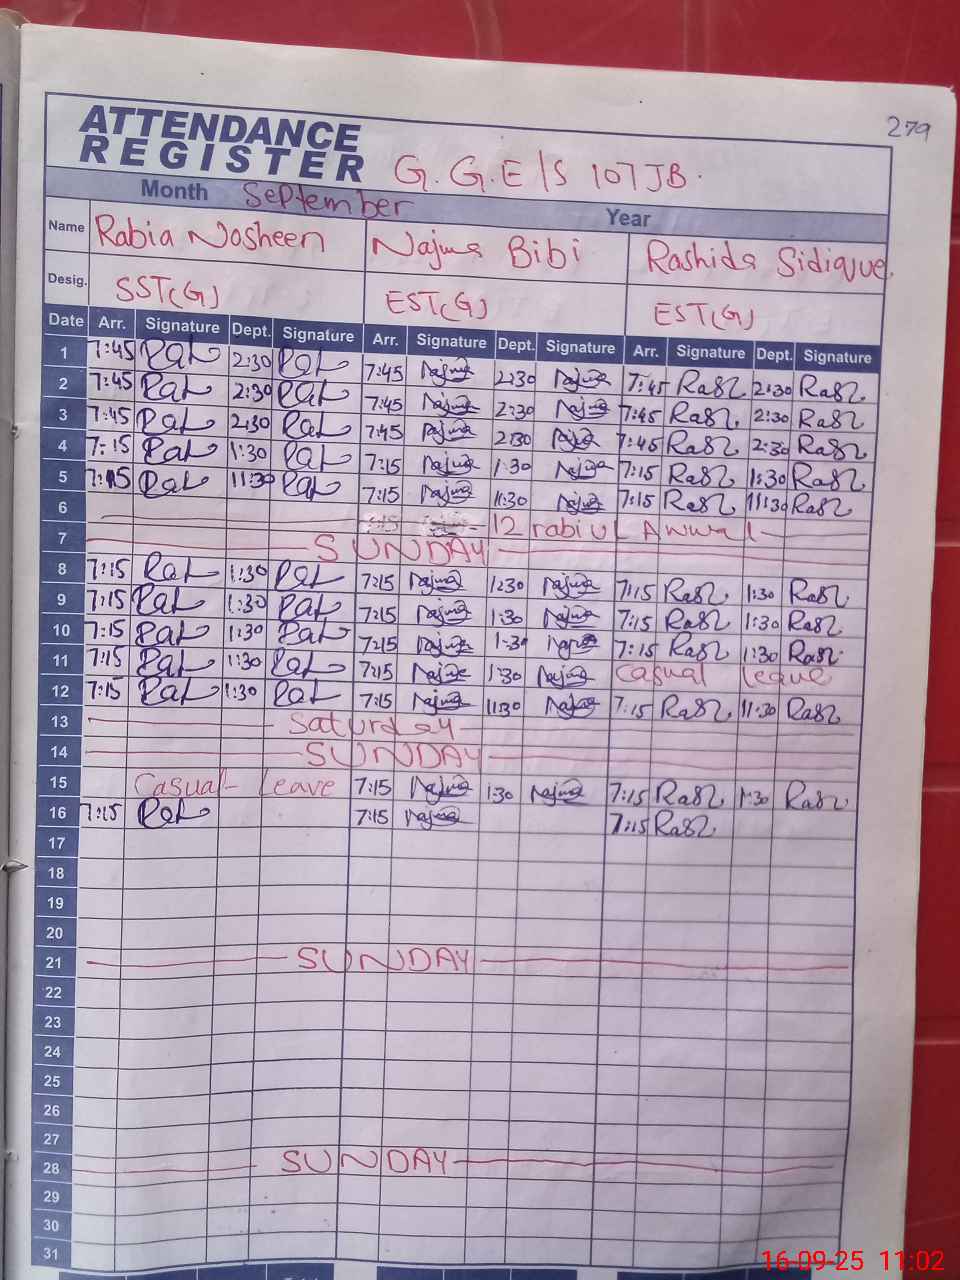 279
ATTENDANCE
REGISTER G.G.E/S 107JB.
Month September Year
Name Rabia Nosheen Najma Bibi Rashida Sidique
Desig. SST(G) EST(G) EST(G)
Date Arr. Signature Dept. Signature Arr. Signature Dept. Signature Arr. Signature Dept. Signature
1 7:45 2:30 7:45 Najma 2:30 Najma 7:45 2:30
2 7:45 2:30 7:45 Najma 2:30 Najma 7:45 2:30
3 7:45 2:30 7:45 Najma 2:30 Najma 7:45 2:30
4 7:15 1:30 7:15 Najma 1:30 Najma 7:15 1:30
5 7:15 11:30 7:15 Najma 11:30 Najma 7:15 11:30
6 12 rabiul Awwal
7 SUNDAY
8 7:15 1:30 7:15 Najma 1:30 Najma 7:15 1:30
9 7:15 1:30 7:15 Najma 1:30 Najma 7:15 1:30
10 7:15 1:30 7:15 Najma 1:30 Najma 7:15 1:30
11 7:15 1:30 7:15 Najma 1:30 Najma Casual leave
12 7:15 1:30 7:15 Najma 11:30 Najma 7:15 11:30
13 Saturday
14 SUNDAY
15 Casual Leave 7:15 Najma 1:30 Najma 7:15 1:30
16 7:15 7:15 Najma 7:15
17
18
19
20
21 SUNDAY
22
23
24
25
26
27
28 SUNDAY
29
30
31
16-09-25 11:02